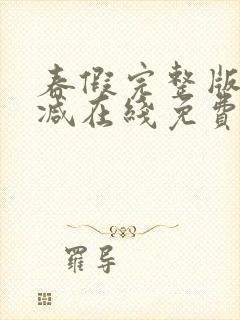 春假完整版
减在线免費
羅导